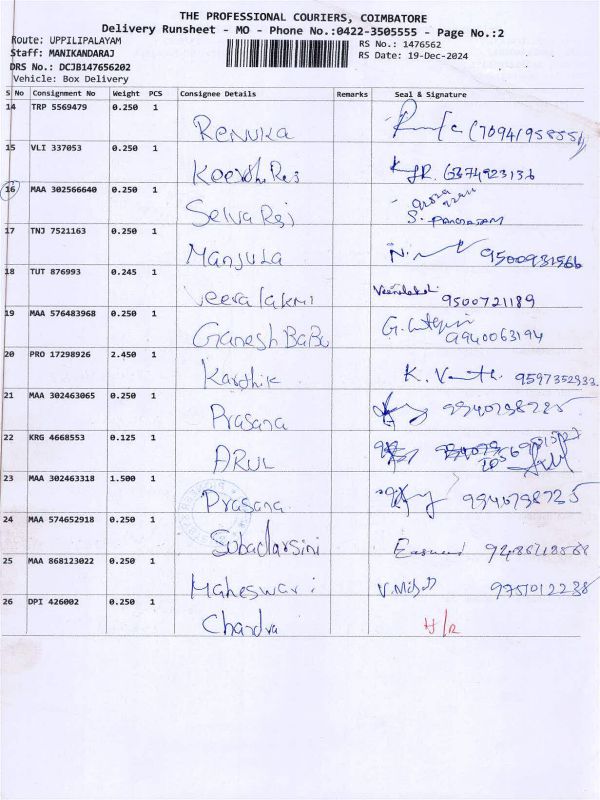 THE PROFESSIONAL COURIERS, COIMBATORE
Delivery Runsheet - MO - Phone No.:0422-3505555 - Page No.:2
Route: UPPILIPALAYAM
Staff: MANIKANDARAJ
DRS No.: DCJB147656202
Vehicle: Box Delivery
RS No.: 1476562
RS Date: 19-Dec-2024
S No Consignment No Weight PCS Consignee Details Remarks Seal & Signature
14 TRP 5569479 0.250 1 Renuka
15 VLI 337053 0.250 1 6374923136
16 MAA 302566640 0.250 1 Selva
17 TNJ 7521163 0.250 1 Manjula 9500931566
18 TUT 876993 0.245 1 veeralakmi 9500721189
19 MAA 576483968 0.250 1 Ganesh Babu 9940063194
20 PRO 17298926 2.450 1 Karthik K. 9597352933
21 MAA 302463065 0.250 1 Prasana
22 KRG 4668553 0.125 1 ARUL
23 MAA 302463318 1.500 1 Prasana
24 MAA 574652918 0.250 1 Subadarsini
25 MAA 868123022 0.250 1 Maheswari 9751012238
26 DPI 426002 0.250 1 Chandra H/R